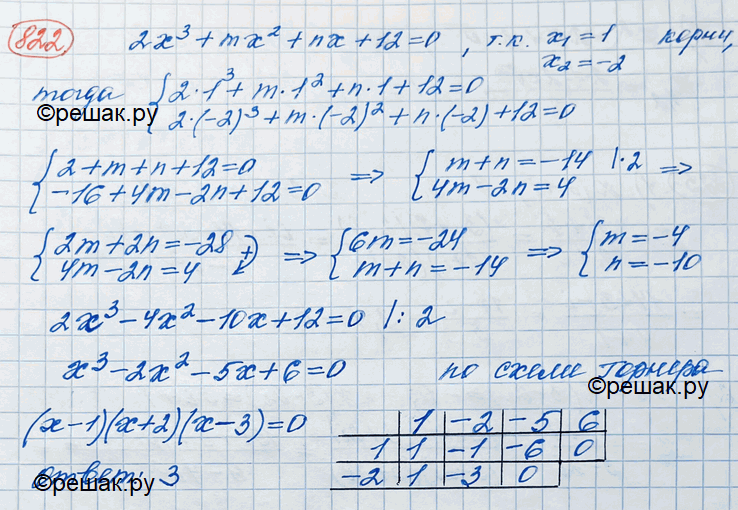 822. 2x³ + mx² + nx + 12 = 0, т.к. x₁ = 1 корни,
x₂ = -2
тогда { 2·1³ + m·1² + n·1 + 12 = 0
©решак.ру
2·(-2)³ + m·(-2)² + n·(-2) + 12 = 0
{ 2 + m + n + 12 = 0 => { m + n = -14 |·2 =>
-16 + 4m - 2n + 12 = 0 4m - 2n = 4
{ 2m + 2n = -28 + => { 6m = -24 => { m = -4
4m - 2n = 4 m + n = -14 n = -10
2x³ - 4x² - 10x + 12 = 0 |: 2
x³ - 2x² - 5x + 6 = 0 по схеме Горнера
©решак.ру
(x-1)(x+2)(x-3) = 0
1 -2 -5 6
1 1 -1 -6 0
ответ: 3
-2 1 -3 0
©решак.ру